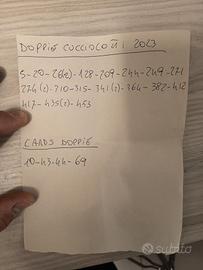 DOPPIE CUCCIOLOTTI 2023
5-20-26(2)-128-209-244-249-271
274(2)-310-315-341(2)-364-382-412
417-435(2)-453
CARDS DOPPIE
10-43-44-69
subito